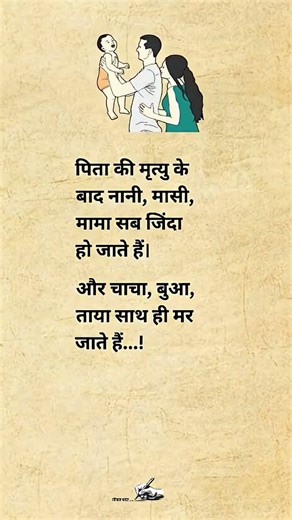 पिता की मृत्यु के
बाद नानी, मासी,
मामा सब जिंदा
हो जाते हैं।
और चाचा, बुआ,
ताया साथ ही मर
जाते हैं...!